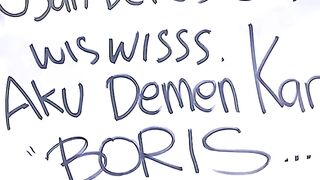 WISWISSS.
AKU DEMEN Kar
"BORIS...